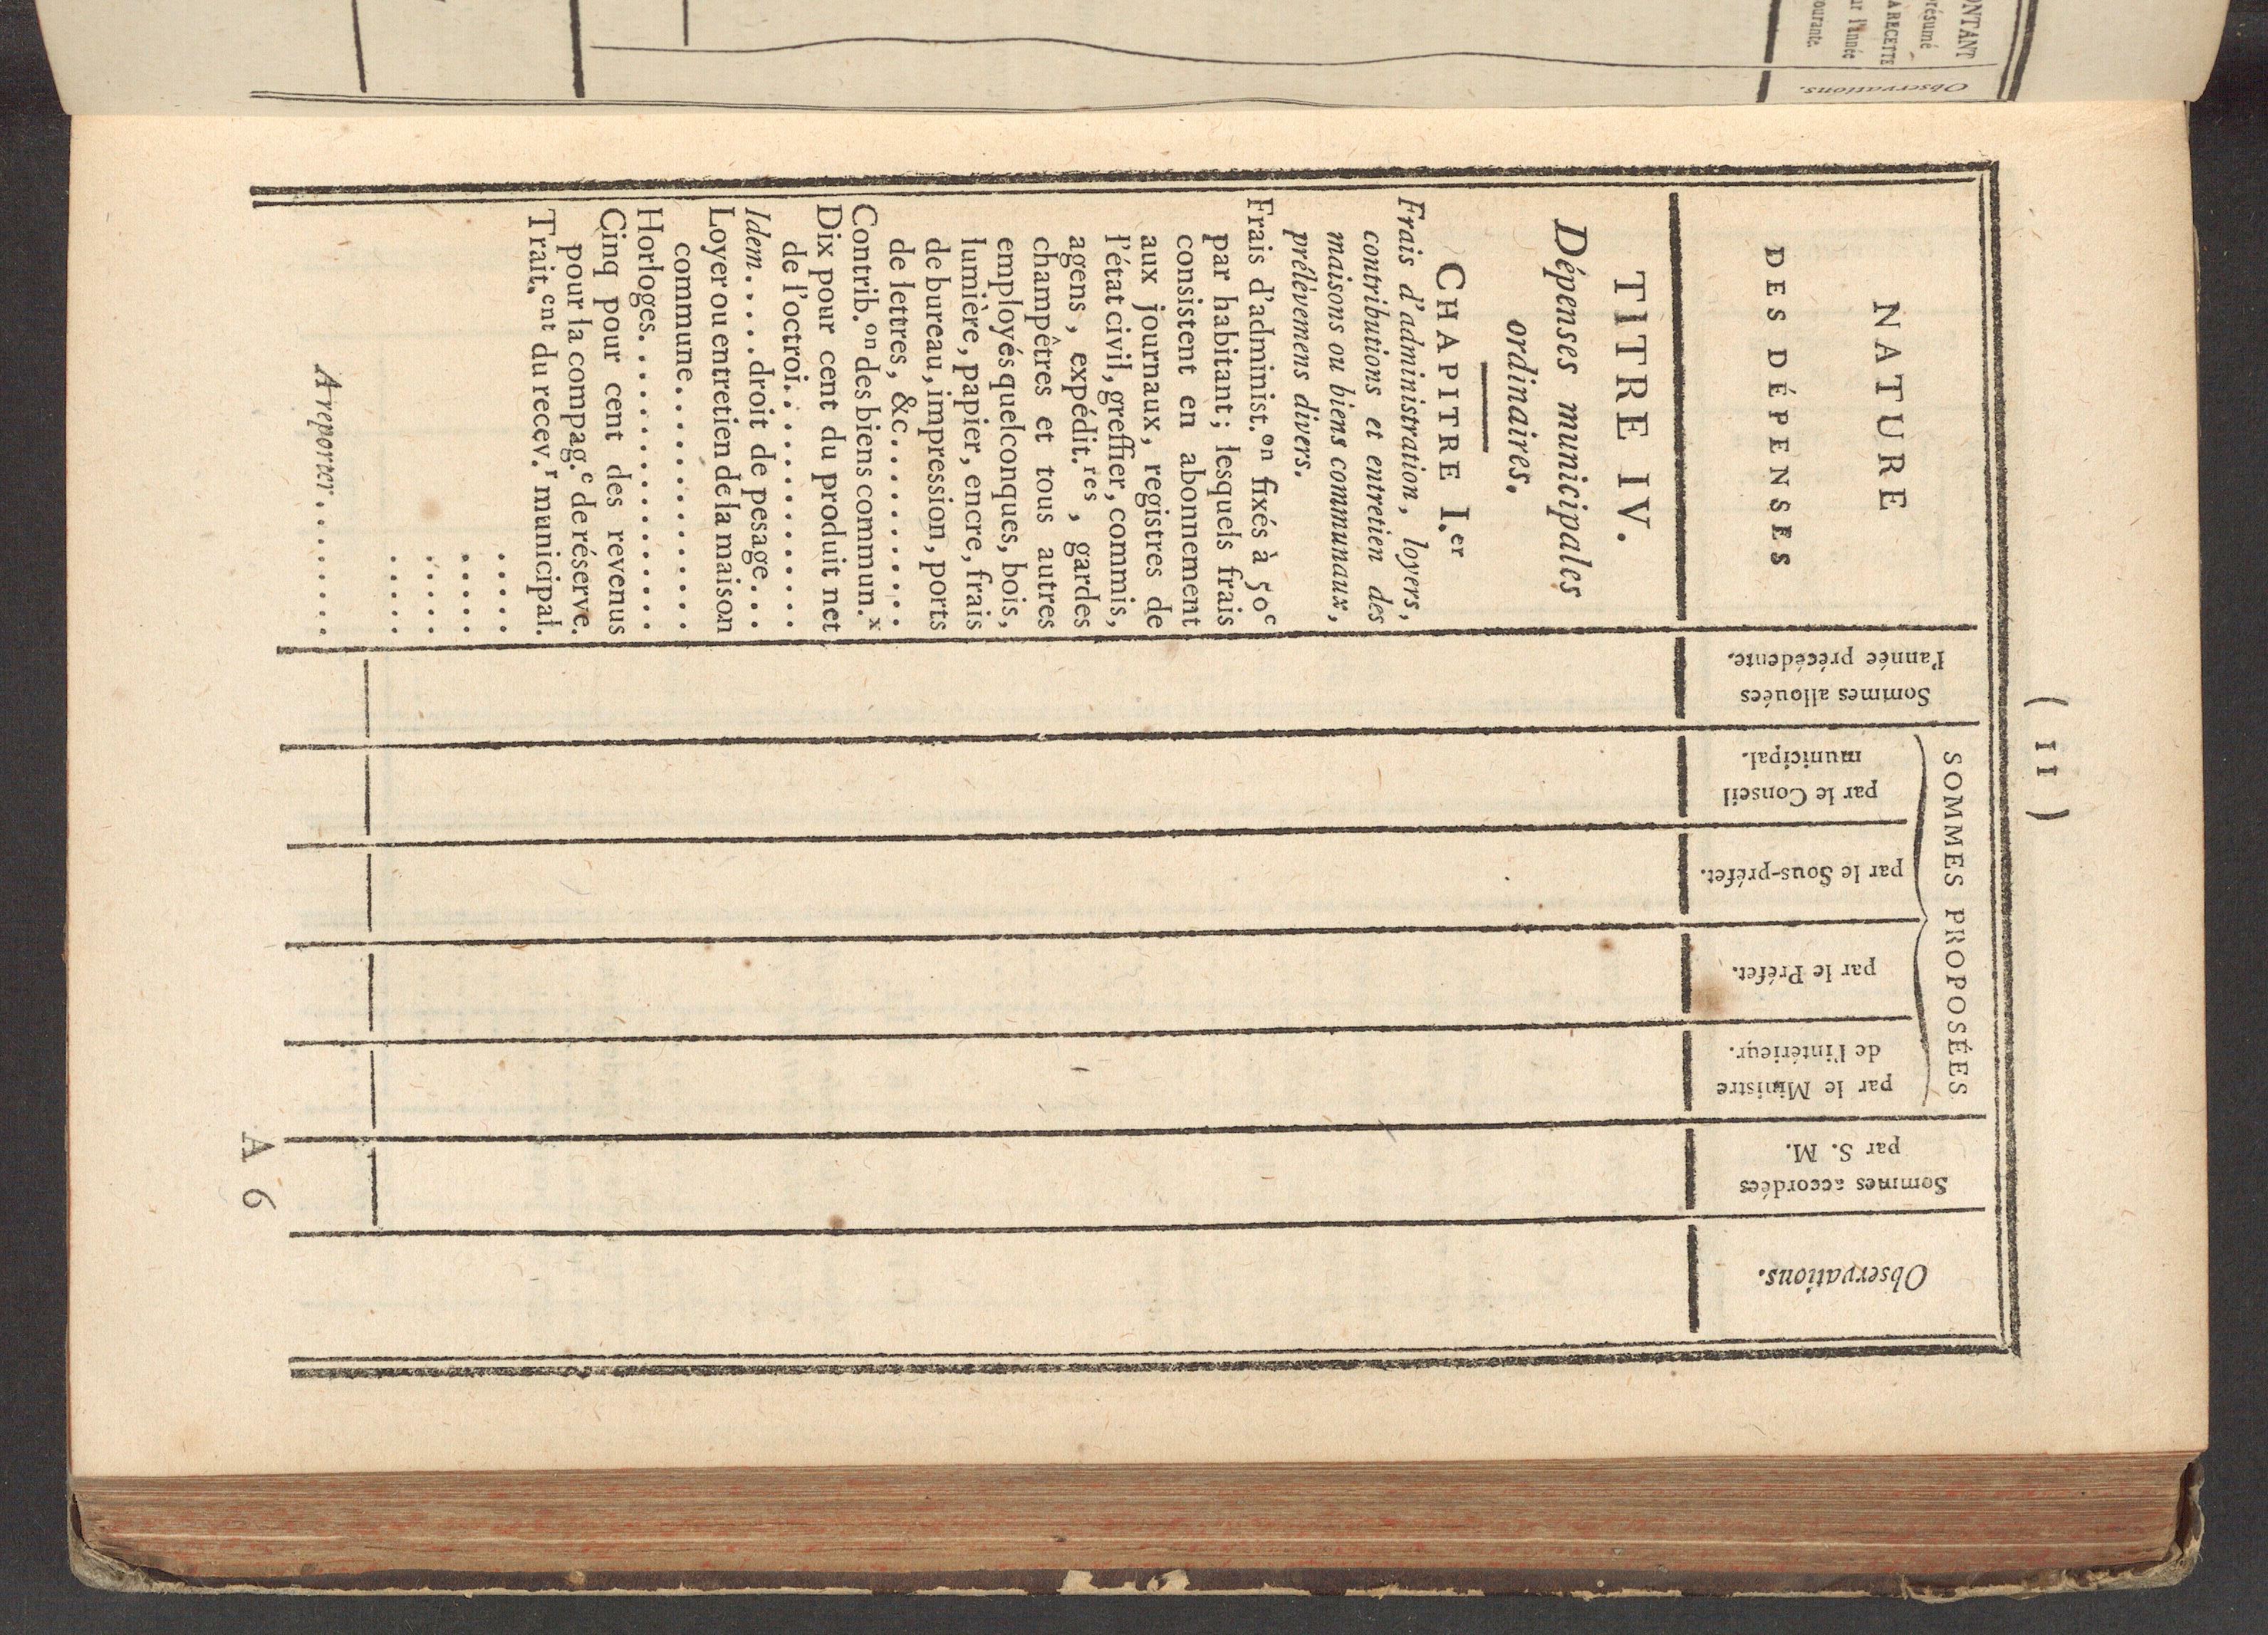 ( 11 )
NATURE
DES DÉPENSES
Sommes allouées
l'année précédente.
SOMMES PROPOSÉES
par le Conseil
municipal.
par le Sous-préfet.
par le Préfet.
par le Ministre
de l'intérieur.
Sommes accordées
par S. M.
Observations.
TITRE IV.
Dépenses municipales
ordinaires.
CHAPITRE I.er
Frais d'administration, loyers,
contributions et entretien des
maisons ou biens communaux,
prélèvemens divers.
Frais d'administ.on fixés à 50c
par habitant; lesquels frais
consistent en abonnement
aux journaux, registres de
l'état civil, greffier, commis,
agens, expédit.res, gardes
champêtres et tous autres
employés quelconques, bois,
lumière, papier, encre, frais
de bureau, impression, ports
de lettres, &c..........
Contrib.on des biens commun.x
Dix pour cent du produit net
de l'octroi.............
Idem..... droit de pesage...
Loyer ou entretien de la maison
commune..............
Horloges.................
Cinq pour cent des revenus
pour la compag.e de réserve.
Trait.ent du recev.r municipal.
.....
.....
.....
.....
A reporter........
A 6
ONTANT
résumé
A RECETTE
ur l'année
ourante.
Observations.